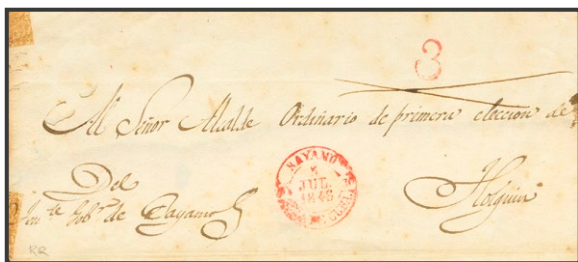 3
Al Señor Alcalde Ordinario de primera eleccion de
Holguin
Del
Gobr. de Bayamo
BAYAMO
JUL.
1845
RR